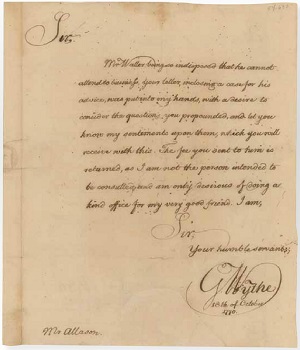 Sir,
Mr Waller being so indisposed that he cannot
attend to business, your letter, inclosing a case for his
advice, was put into my hands, with a desire to
consider the questions you propounded, and let you
know my sentiments upon them, which you will
receive with this. The fee you sent to him is
returned, as I am not the person intended to
be consulted, and am only desirous of doing a
kind office for my very good friend. I am,
Sir,
Your humble servant,
G Wythe
18th of October
Mr Allason